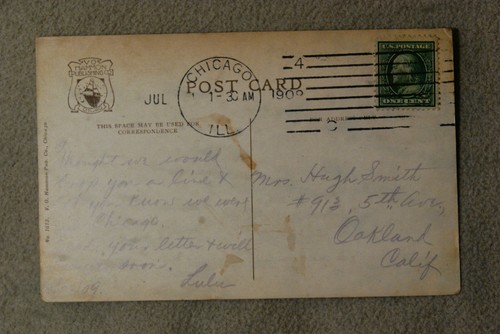 V.O.
HAMMON
PUBLISHING CO.
CHICAGO
ILL.
JUL
1-30 AM
4
1909
POST CARD
U.S. POSTAGE
ONE CENT
THIS SPACE MAY BE USED FOR
CORRESPONDENCE
ADDRESS
No. 1012. V. O. Hammon Pub. Co., Chicago
Thought we would
drop you a line &
let you know we were
Chicago.
your letter & will
soon.
Lulu
Mrs. Hugh Smith
#913, 5th Ave,
Oakland
Calif